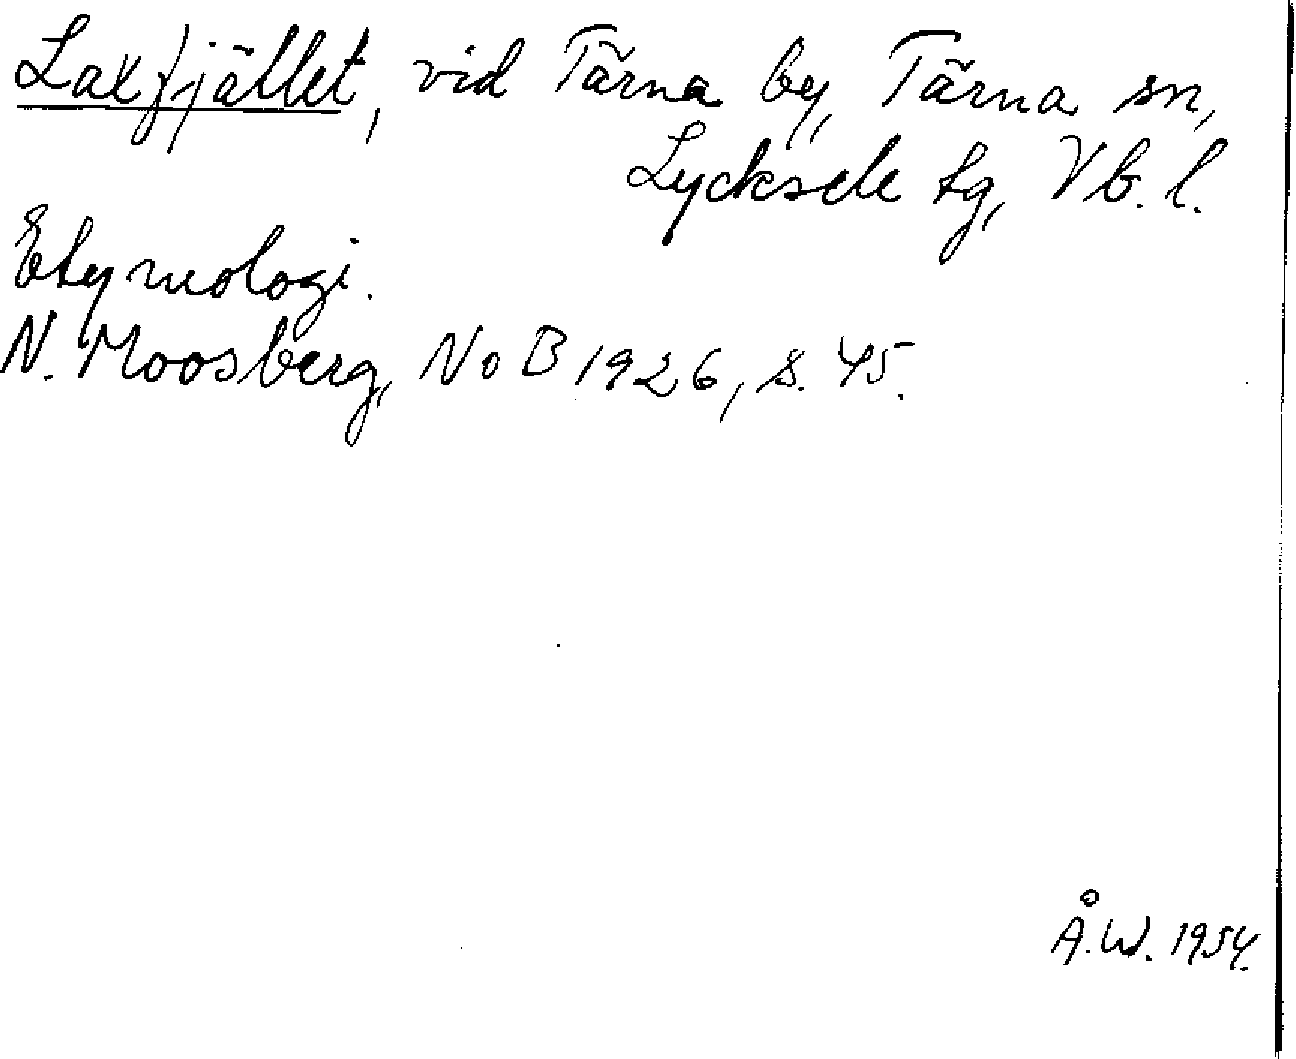 Laxfjället, vid Tärna by, Tärna sn,
Lycksele tg, Vb. l.
Etymologi.
N. Moosberg, NoB 1926, s. 45.
Å.W. 1954.